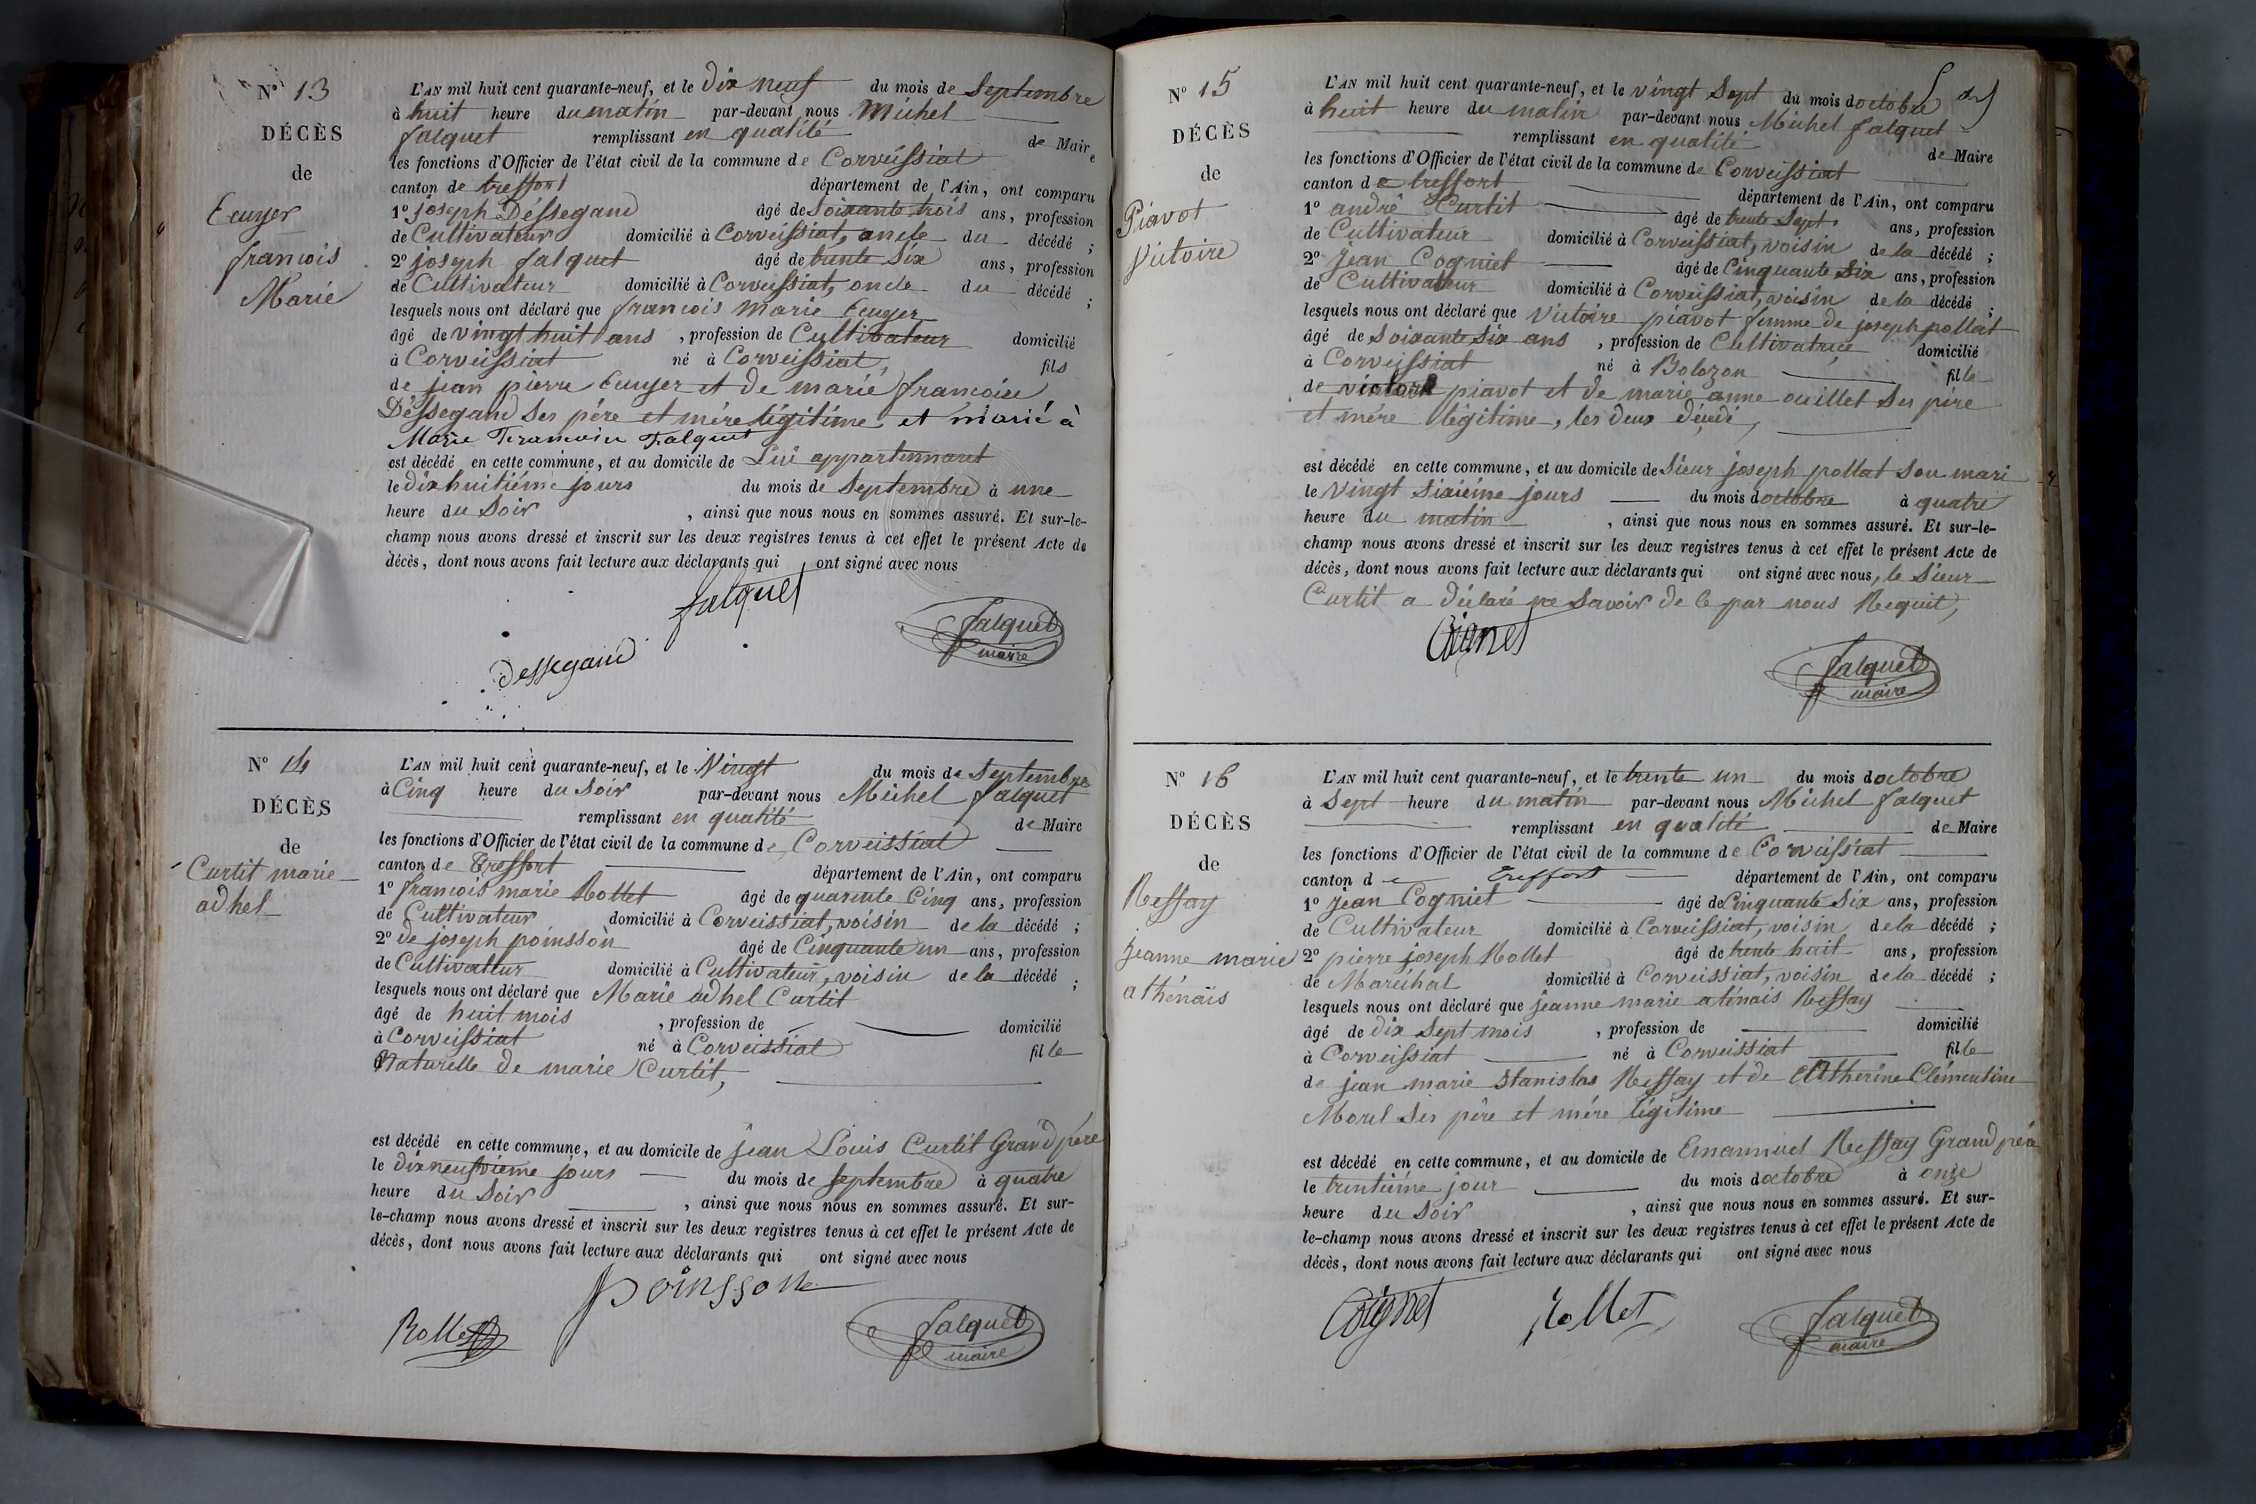 N° 13
DÉCÈS
de
Ecuyer
francois
Marie
L'AN mil huit cent quarante-neuf, et le dix neuf du mois de Septembre
à huit heure du matin par-devant nous Michel
falquet remplissant en qualité de Maire
les fonctions d'Officier de l'état civil de la commune de Corveissiat
canton de treffort département de l'Ain, ont comparu
1° joseph Déssegand âgé de Soixante trois ans, profession
de Cultivateur domicilié à Corveissiat, oncle du décédé ;
2° joseph falquet âgé de trente Six ans, profession
de Cultivateur domicilié à Corveissiat, oncle du décédé ;
lesquels nous ont déclaré que francois marie Ecuyer
âgé de vingt huit ans , profession de Cultivateur domicilié
à Corveissiat né à Corveissiat, fils
de jean pierre Ecuyer et de marie francoise
Déssegand Ses pére et mére légitime et marié à
Marie Francoise Falquet
est décédé en cette commune, et au domicile de Lui appartenant
le dix huitiéme jours du mois de Septembre à une
heure du Soir , ainsi que nous nous en sommes assuré. Et sur-le-
champ nous avons dressé et inscrit sur les deux registres tenus à cet effet le présent Acte de
décès, dont nous avons fait lecture aux déclarants qui ont signé avec nous
falquet
dessegand
falquet
maire
N° 14
DÉCÈS
de
Curtit marie
adhel
L'AN mil huit cent quarante-neuf, et le Vingt du mois de Septembre
à Cinq heure du Soir par-devant nous Michel falquet
remplissant en qualité de Maire
les fonctions d'Officier de l'état civil de la commune de Corveissiat
canton de Treffort département de l'Ain, ont comparu
1° francois marie Rollet âgé de quarente Cinq ans, profession
de Cultivateur domicilié à Corveissiat, voisin de la décédé ;
2° de joseph poinsson âgé de Cinquante un ans, profession
de Cultivateur domicilié à Cultivateur, voisin de la décédé ;
lesquels nous ont déclaré que Marie adhel Curtit
âgé de huit mois , profession de domicilié
à Corveissiat né à Corveissiat fille
Naturelle de marie Curtit,
est décédé en cette commune, et au domicile de jean Louis Curtit Grand pere
le dix neufvieme jours du mois de Septembre à quatre
heure du Soir , ainsi que nous nous en sommes assuré. Et sur-
le-champ nous avons dressé et inscrit sur les deux registres tenus à cet effet le présent Acte de
décès, dont nous avons fait lecture aux déclarants qui ont signé avec nous
poinsson
Rollet
falquet
maire
N° 15
DÉCÈS
de
Piavot
Victoire
L'AN mil huit cent quarante-neuf, et le vingt Sept du mois doctobre
à huit heure du matin par-devant nous Michel falquet
remplissant en qualité de Maire
les fonctions d'Officier de l'état civil de la commune de Corveissiat
canton de treffort département de l'Ain, ont comparu
1° andré Curtit âgé de trente Sept ans, profession
de Cultivateur domicilié à Corveissiat, voisin de la décédé ;
2° jean Cogniet âgé de Cinquante Six ans, profession
de Cultivateur domicilié à Corveissiat, voisin de la décédé ;
lesquels nous ont déclaré que Victoire piavot femme de joseph pollat
âgé de Soixante Six ans , profession de Cultivatrice domicilié
à Corveissiat né à Bolozon fille
de piavot et de marie anne ouillet Ses pére
et mére légitime, les deux décédé,
est décédé en cette commune, et au domicile de Sieur joseph pollat Son mari
le Vingt Sixiéme jours du mois doctobre à quatre
heure du matin , ainsi que nous nous en sommes assuré. Et sur-le-
champ nous avons dressé et inscrit sur les deux registres tenus à cet effet le présent Acte de
décès, dont nous avons fait lecture aux déclarants qui ont signé avec nous, le Sieur
Curtit a déclaré ne Savoir de ce par nous Requit,
Coignet
falquet
maire
N° 16
DÉCÈS
de
Reffay
jeanne marie
athénais
L'AN mil huit cent quarante-neuf, et le trente un du mois doctobre
à Sept heure du matin par-devant nous Michel falquet
remplissant en qualité de Maire
les fonctions d'Officier de l'état civil de la commune de Corveissiat
canton de Treffort département de l'Ain, ont comparu
1° jean Cogniet âgé de Cinquante Six ans, profession
de Cultivateur domicilié à Corveissiat, voisin de la décédé ;
2° pierre joseph Rollet âgé de trente huit ans, profession
de Maréchal domicilié à Corveissiat, voisin de la décédé ;
lesquels nous ont déclaré que jeanne marie aténais Reffay
âgé de dix Sept mois , profession de domicilié
à Corveissiat né à Corveissiat fille
de jean marie Stanislas Reffay et de Catherine Clémentine
Morel Ses pére et mére légitime
est décédé en cette commune, et au domicile de Emannuel Reffay Grand pére
le trentiéme jour du mois doctobre à onze
heure du Soir , ainsi que nous nous en sommes assuré. Et sur-
le-champ nous avons dressé et inscrit sur les deux registres tenus à cet effet le présent Acte de
décès, dont nous avons fait lecture aux déclarants qui ont signé avec nous
Coignet
Rollet
falquet
maire